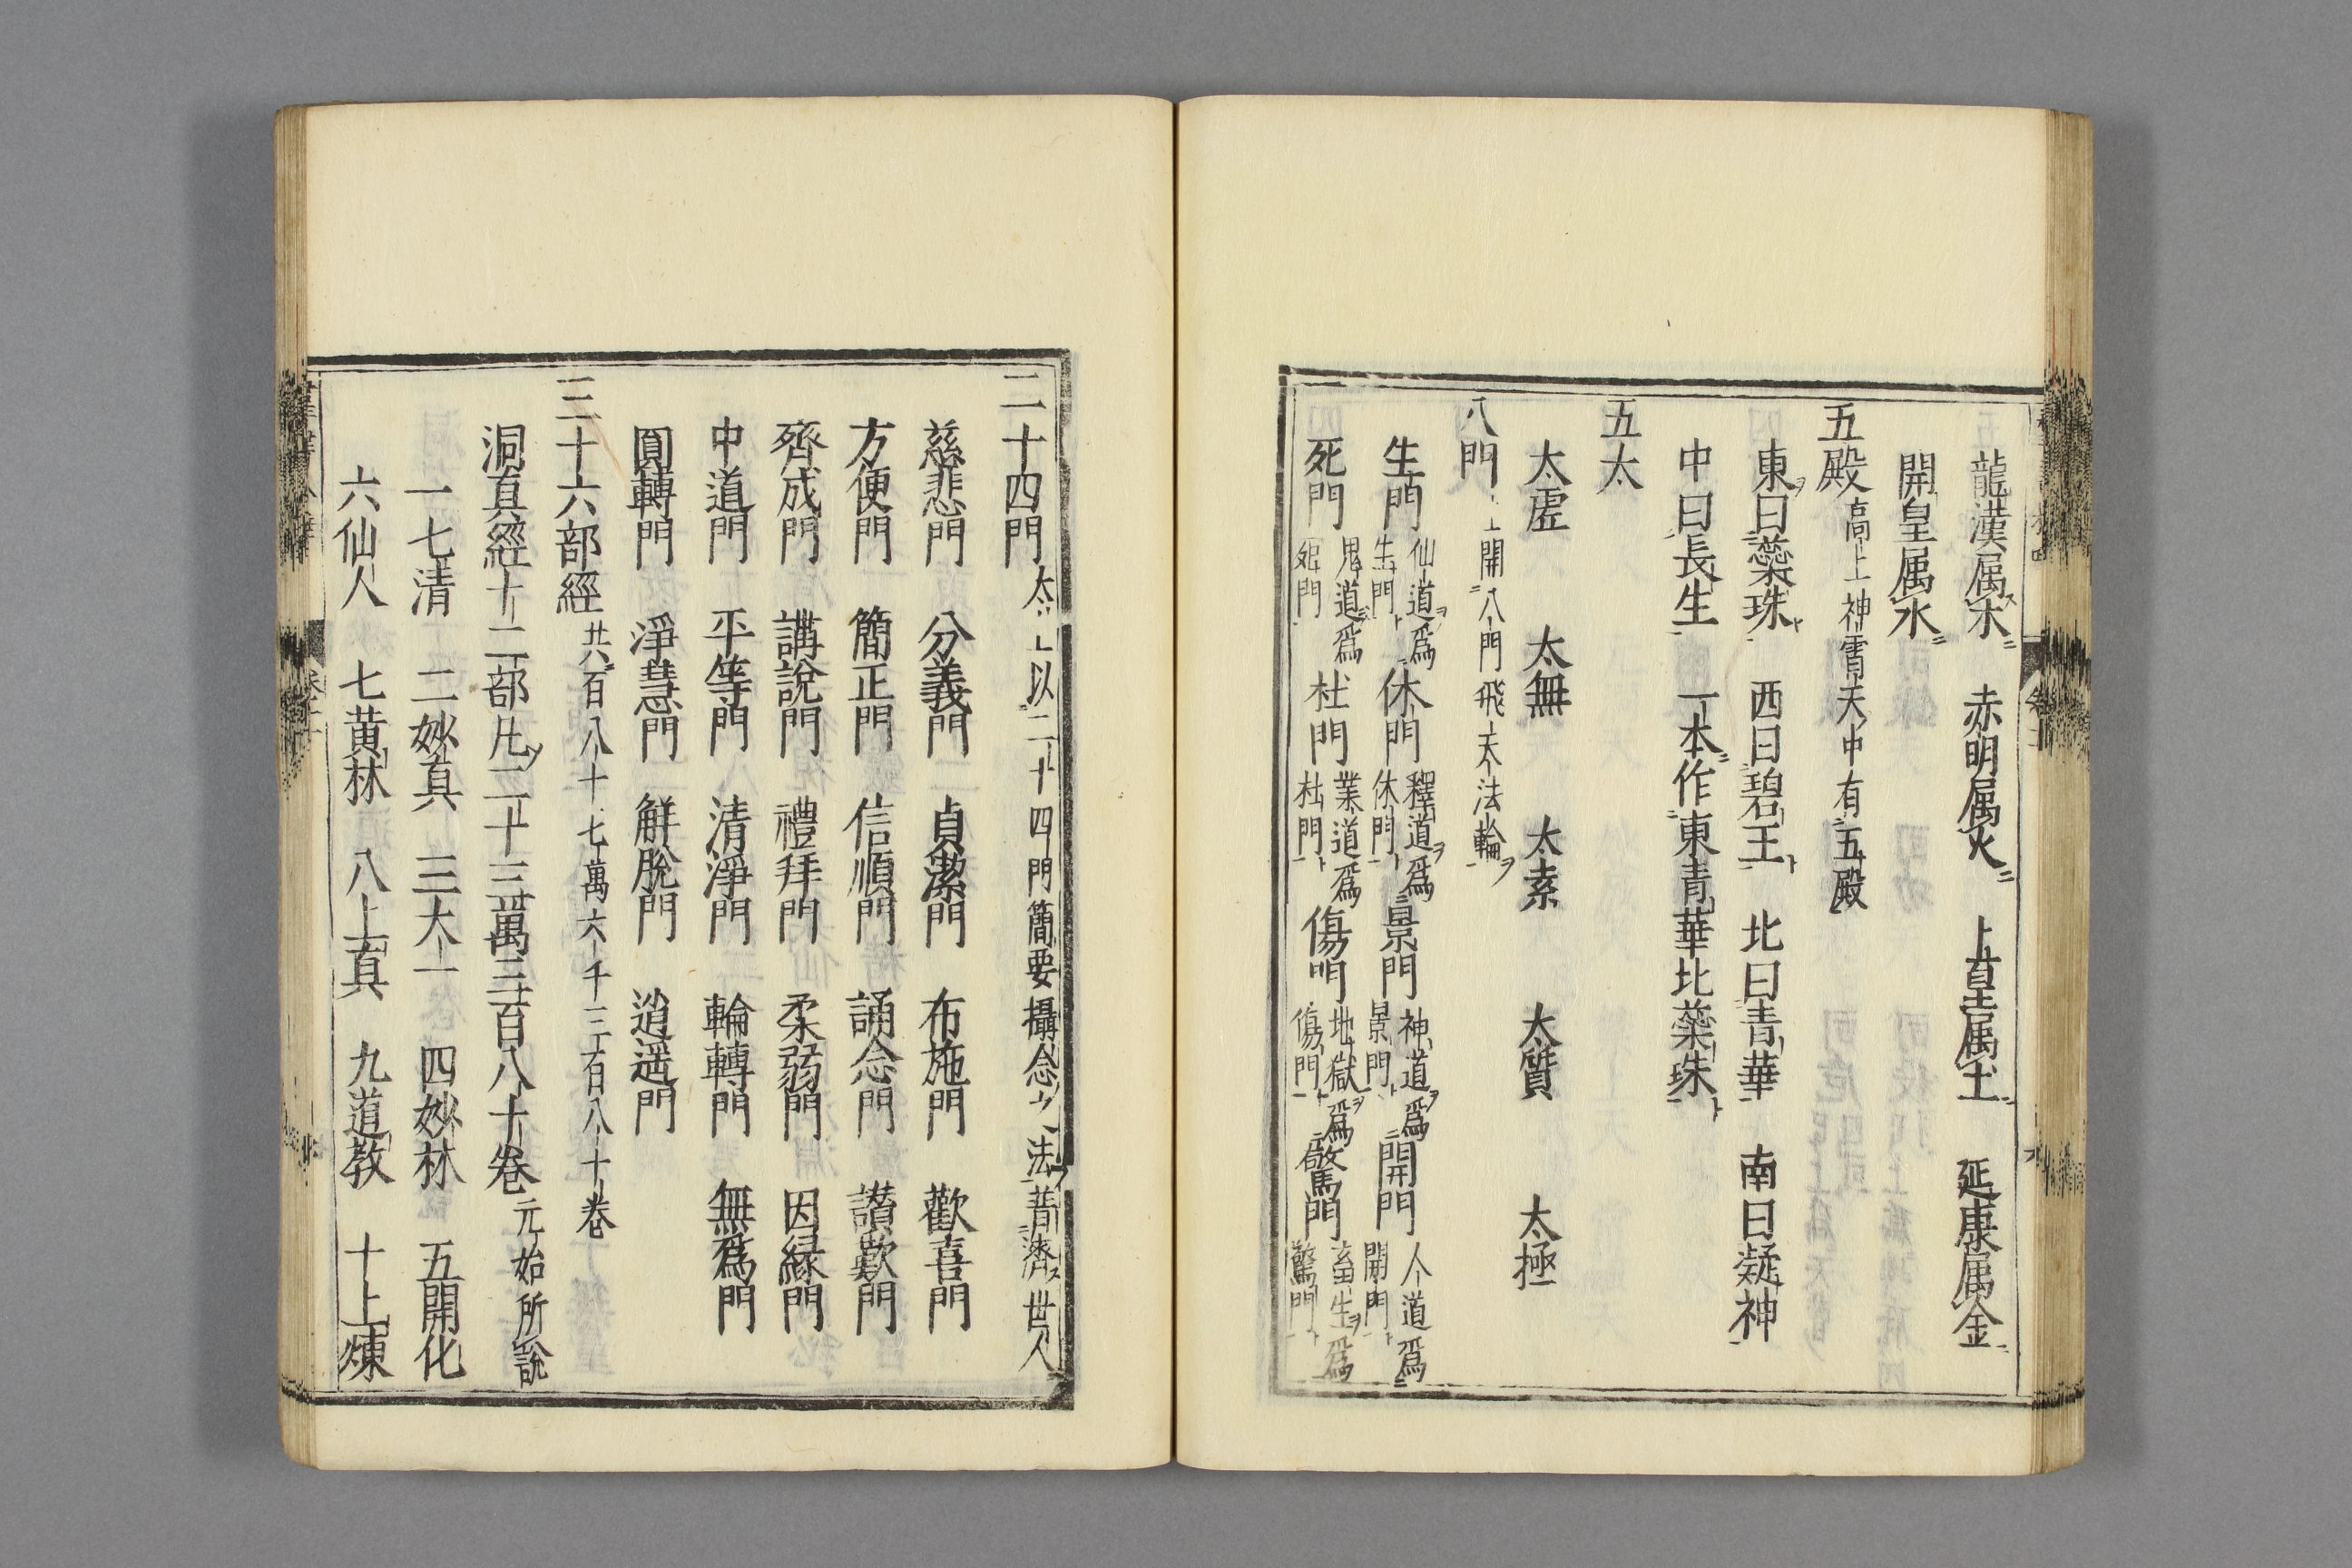 龍漢属木　赤明属火　上皇属土　延康属金
開皇属水
五殿 高上神霄天中有五殿
東曰蘂珠　西曰碧玉　北曰青華　南曰凝神
中曰長生　一本作東青華北蘂珠
五太
太虛　太無　太素　太質　太極
八門 上開八門飛天法輪
生門 仙道爲生門 休門 釋道爲休門 景門 神道爲景門 開門 人道爲開門
死門 鬼道爲死門 杜門 業道爲杜門 傷門 地獄爲傷門 驚門 畜生爲驚門
二十四門 太上以二十四門簡要攝念之法普濟世人
慈悲門　分義門　貞潔門　布施門　歡喜門
方便門　簡正門　信順門　誦念門　讃歎門
齊成門　講說門　禮拜門　柔弱門　因緣門
中道門　平等門　清淨門　輪轉門　無爲門
圓轉門　淨慧門　解脫門　逍遥門
三十六部經 共百八十七萬六千三百八十卷
洞真經十二部凡二十三萬三百八十卷 元始所說
一七清　二妙真　三太一　四妙林　五開化
六仙人　七黄林　八上真　九道教　十上煉